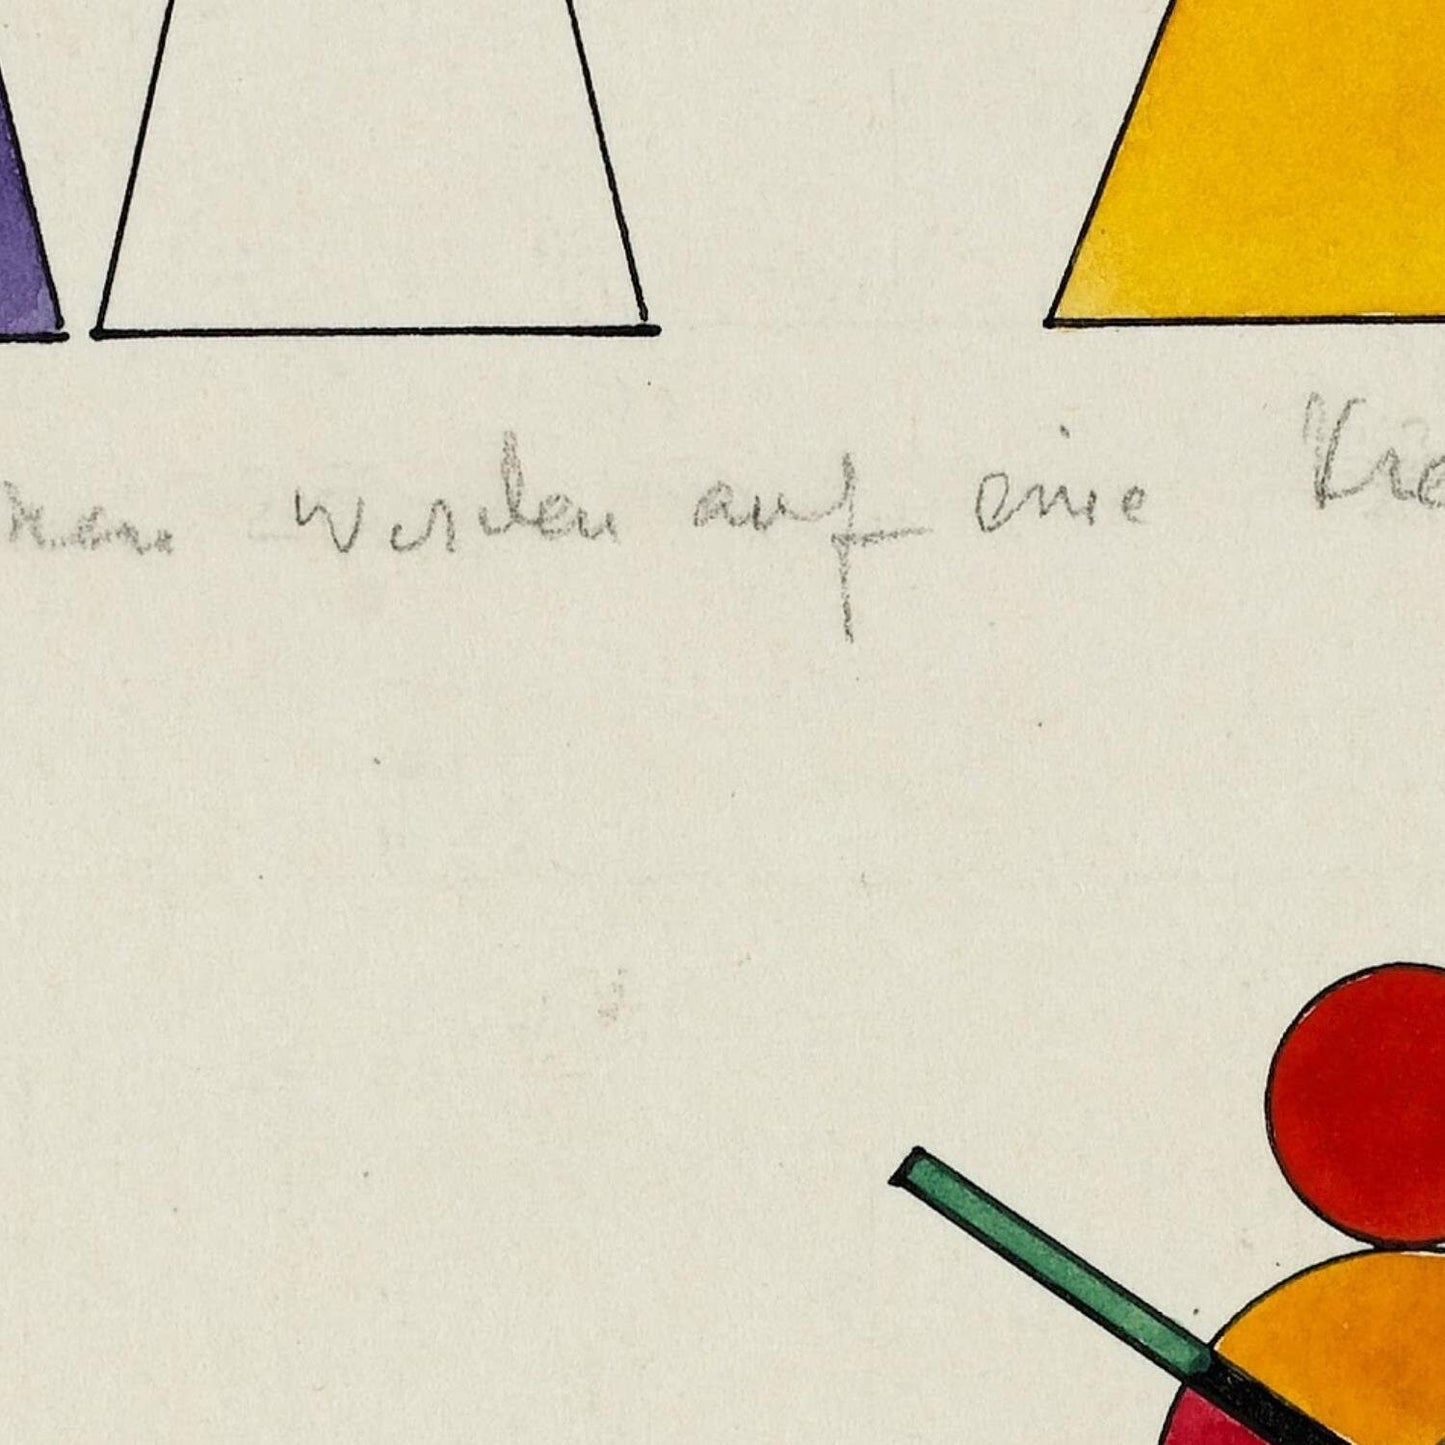 werden auf eine